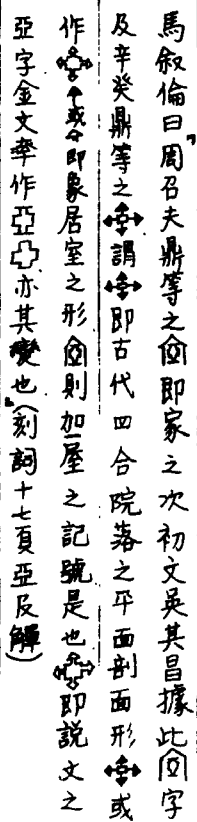 馬叙倫曰「周召夫鼎等之即家之次初文吳其昌據此字
及辛癸鼎等之謂即古代四合院落之平面剖面形或
作或即象居室之形則加一屋之記號是也即説文之
亞字金文率作亞亦其變也」(刻詞十七頁亞及觶)